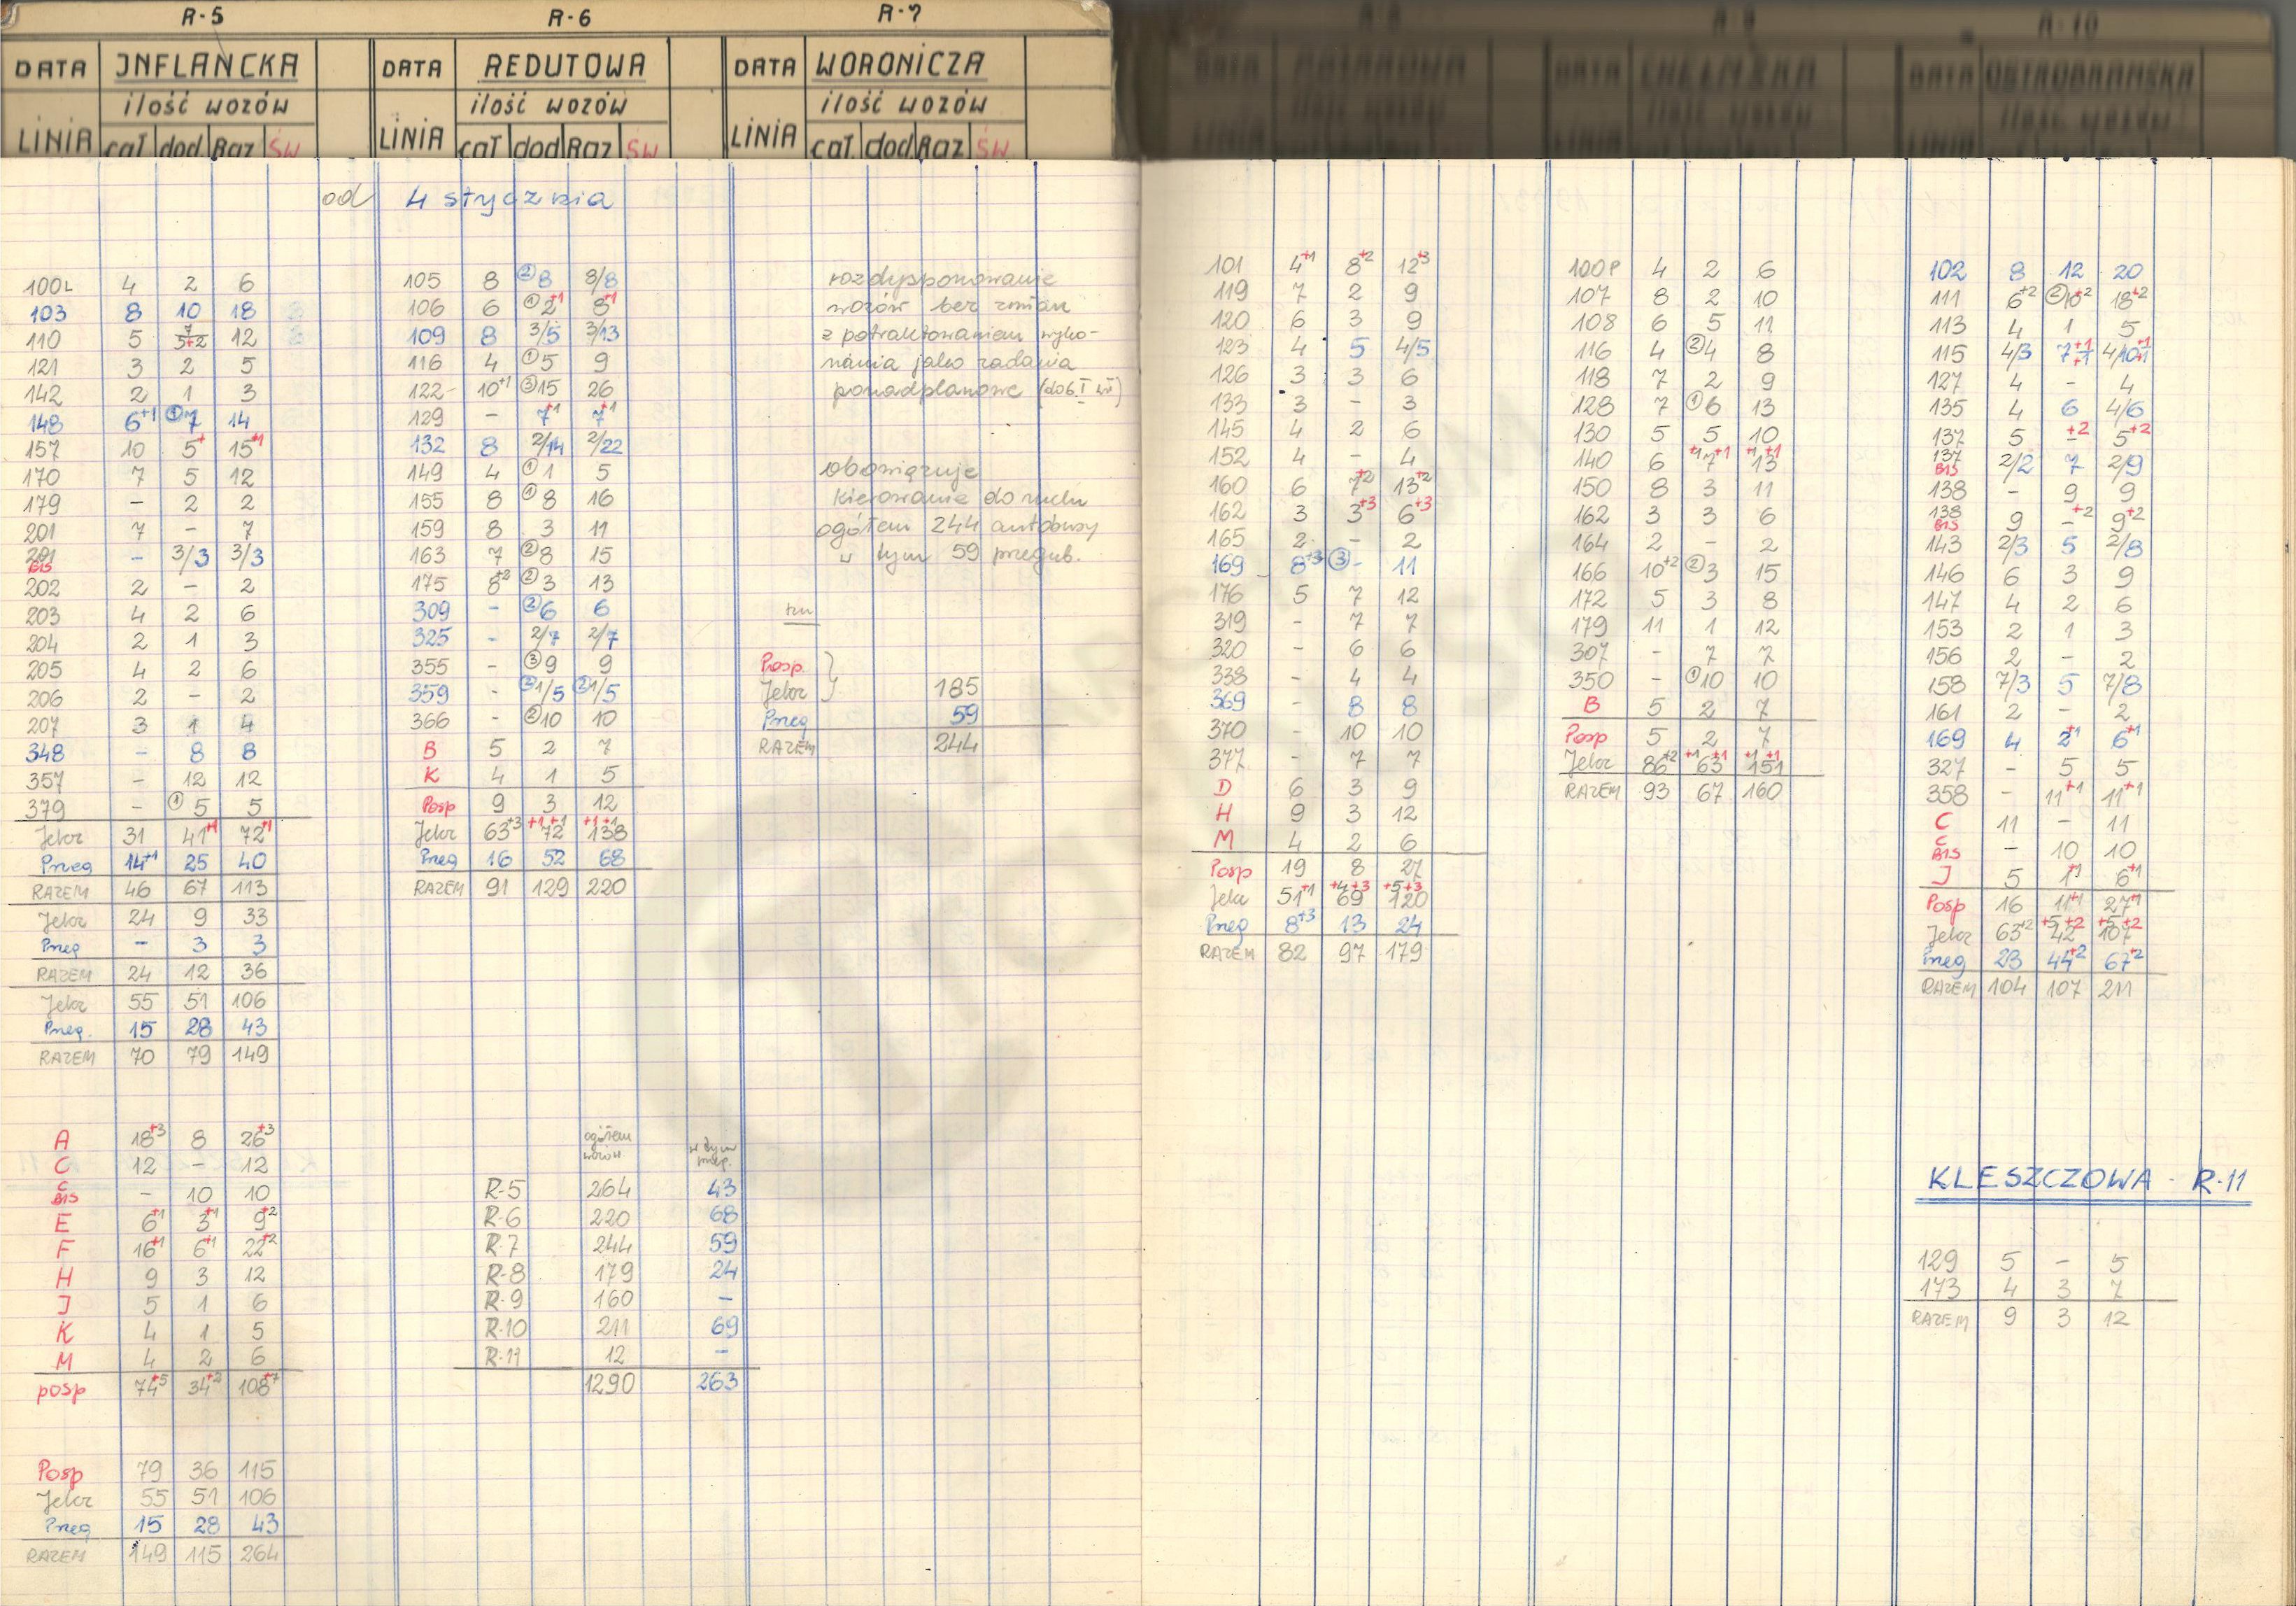 R-5
DATA INFLANCKA
ilość wozów
LINIA cał dod Raz ŚW
R-6
DATA REDUTOWA
ilość wozów
LINIA cał dod Raz ŚW
R-7
DATA WORONICZA
ilość wozów
LINIA cał. dod Raz ŚW
R-8
DATA
LINIA
R-9
DATA CHEŁMSKA
ilość wozów
LINIA
R-10
DATA OSTROBRAMSKA
ilość wozów
LINIA
od 4 stycznia
100L 4 2 6
103 8 10 18
110 5 7 5+2 12
121 3 2 5
142 2 1 3
148 6+1 ①7 14
157 10 5+ 15+1
170 7 5 12
179 - 2 2
201 7 - 7
201 BIS - 3/3 3/3
202 2 - 2
203 4 2 6
204 2 1 3
205 4 2 6
206 2 - 2
207 3 1 4
348 - 8 8
357 - 12 12
379 - ①5 5
Jelcz 31 41+1 72+1
Przeg 14+1 25 40
RAZEM 46 67 113
Jelcz 24 9 33
Przeg - 3 3
RAZEM 24 12 36
Jelcz 55 51 106
Przeg. 15 28 43
RAZEM 70 79 149
A 18+3 8 26+3
C 12 - 12
C BIS - 10 10
E 6+1 3+1 9+2
F 16+1 6+1 22+2
H 9 3 12
J 5 1 6
K 4 1 5
M 4 2 6
posp 74+5 34+2 108+7
Posp 79 36 115
Jelcz 55 51 106
Przeg 15 28 43
RAZEM 149 115 264
105 8 ②8 8/8
106 6 ①2+1 8+1
109 8 3/5 3/13
116 4 ①5 9
122 10+1 ③15 26
129 - 7+1 7+1
132 8 2/14 2/22
149 4 ①1 5
155 8 ①8 16
159 8 3 11
163 7 ②8 15
175 8+2 ②3 13
309 - ②6 6
325 - 2/7 2/7
355 - ③9 9
359 - ②1/5 ②1/5
366 - ②10 10
B 5 2 7
K 4 1 5
Posp 9 3 12
Jelcz 63+3 +1+1 72 +1+1 138
Przeg 16 52 68
RAZEM 91 129 220
ogółem wozów w tym przeg.
R-5 264 43
R-6 220 68
R-7 244 59
R-8 179 24
R-9 160 -
R-10 211 69
R-11 12 -
1290 263
rozdysponowanie
wozów bez zmian
z potraktowaniem wyko-
nania jako zadania
ponadplanowe
obowiązuje
kierowanie do ruchu
ogółem 244 autobusy
w tym 59 przegub.
Posp.
Jelcz } 185
Przeg 59
RAZEM 244
101 4+1 8+2 12+3
119 7 2 9
120 6 3 9
123 4 5 4/5
126 3 3 6
133 3 - 3
145 4 2 6
152 4 - 4
160 6 7+2 13+2
162 3 3+3 6+3
165 2 - 2
169 8+3 ③- 11
176 5 7 12
319 - 7 7
320 - 6 6
338 - 4 4
369 - 8 8
370 - 10 10
377 - 7 7
D 6 3 9
H 9 3 12
M 4 2 6
Posp 19 8 27
Jelcz 51+1 +4+3 69 +5+3 120
Przeg 8+3 13 24
RAZEM 82 97 179
100P 4 2 6
107 8 2 10
108 6 5 11
116 4 ②4 8
118 7 2 9
128 7 ①6 13
130 5 5 10
140 6 +1 7+1 +1 13+1
150 8 3 11
162 3 3 6
164 2 - 2
166 10+2 ②3 15
172 5 3 8
179 11 1 12
307 - 7 7
350 - ①10 10
B 5 2 7
Posp 5 2 7
Jelcz 86+2 +1 63+1 +1 151+1
RAZEM 93 67 160
102 8 12 20
111 6+2 ②10+2 18+2
113 4 1 5
115 4/3 7+1+1 4/10+1+1
127 4 - 4
135 4 6 4/6
137 5 -+2 5+2
137 BIS 2/2 7 2/9
138 - 9 9
138 BIS 9 -+2 9+2
143 2/3 5 2/8
146 6 3 9
147 4 2 6
153 2 1 3
156 2 - 2
158 7/3 5 7/8
161 2 - 2
169 4 2+1 6+1
327 - 5 5
358 - 11+1 11+1
C 11 - 11
C BIS - 10 10
J 5 1+1 6+1
Posp 16 11+1 27+1
Jelcz 63+2 +5 42+2 +5 107+2
Przeg 23 44+2 67+2
RAZEM 104 107 211
KLESZCZOWA - R-11
129 5 - 5
173 4 3 7
RAZEM 9 3 12